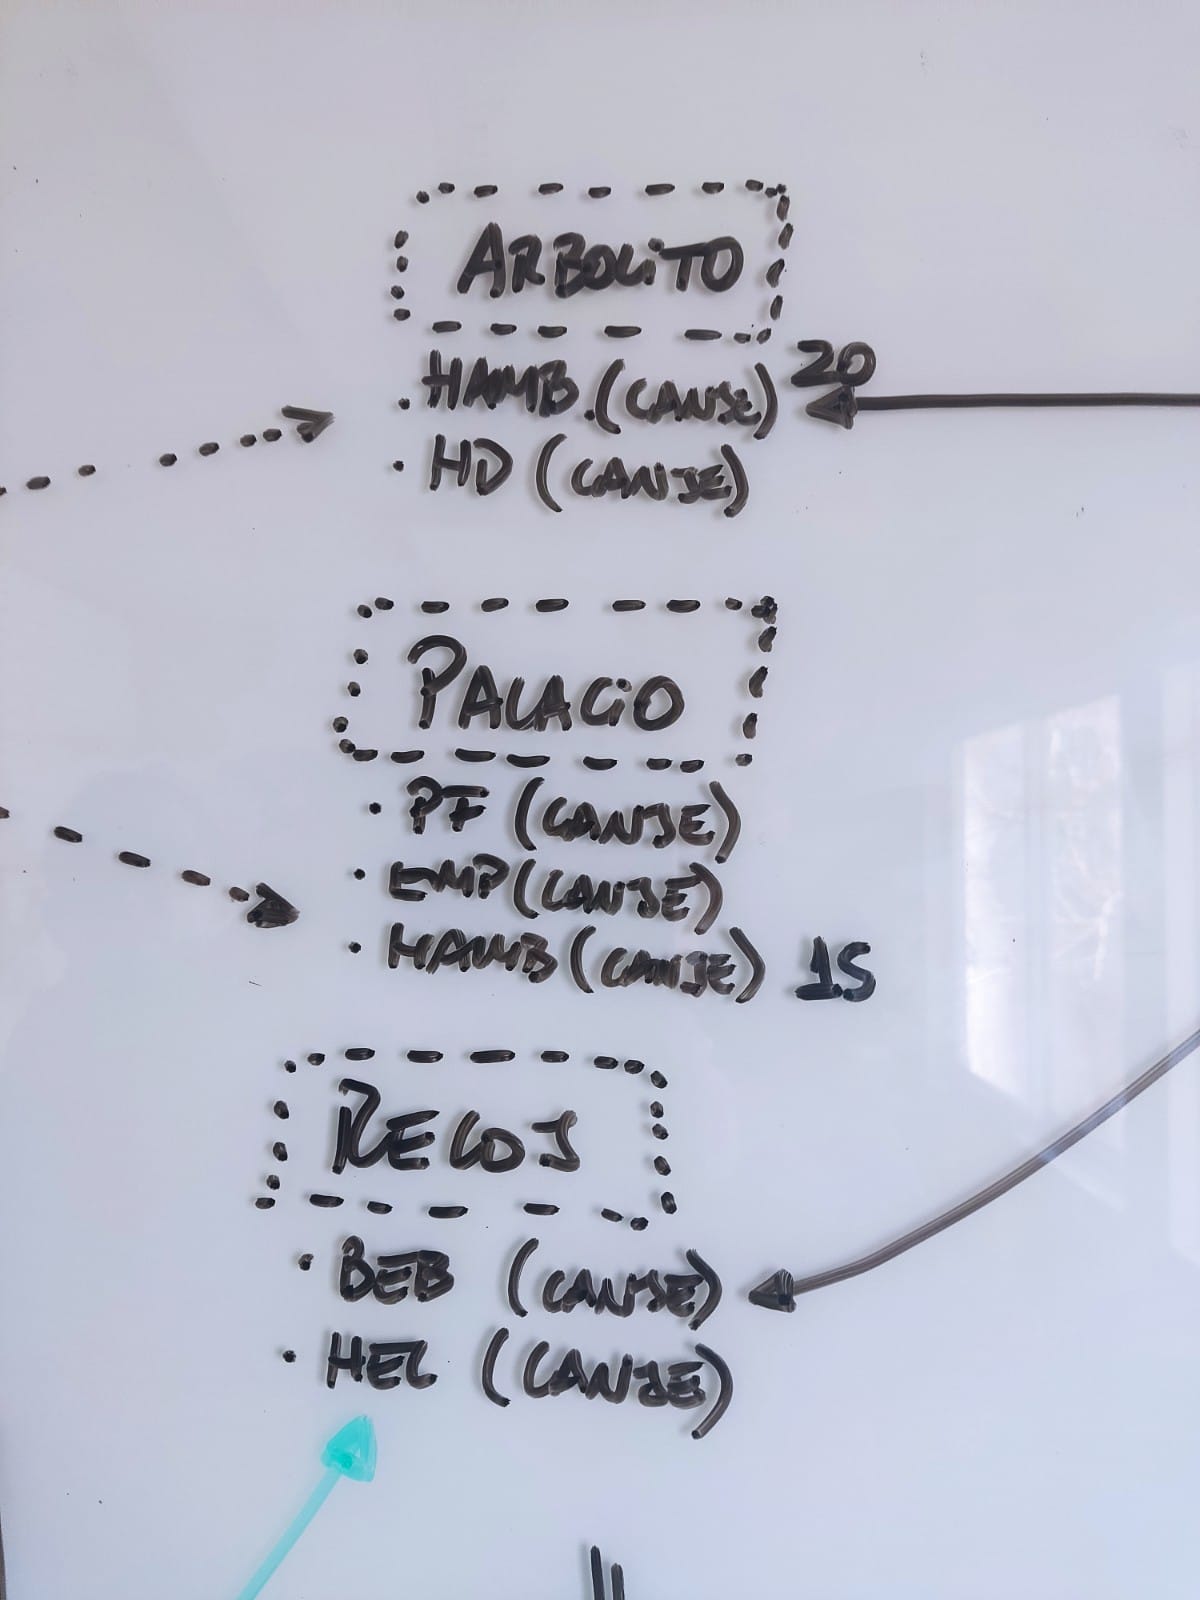 ARBOLiTO
· HAMB. (CANJE) 20
· HD (CANJE)
PALACiO
· PF (CANJE)
· EMP (CANJE)
· HAMB (CANJE) 15
RELOJ
· BEB (CANJE)
· HEL (CANJE)